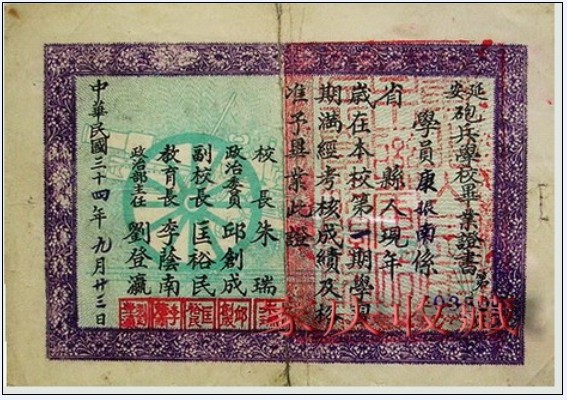 延安砲兵學校畢業證書
學員康振南係
省　縣人現年
歲在本校第一期學習
期滿經考核成績及格
准予畢業此證
校長朱瑞
政治委員邱創成
副校長匡裕民
教育長李蔭南
政治部主任劉登瀛
中華民國三十四年九月廿三日